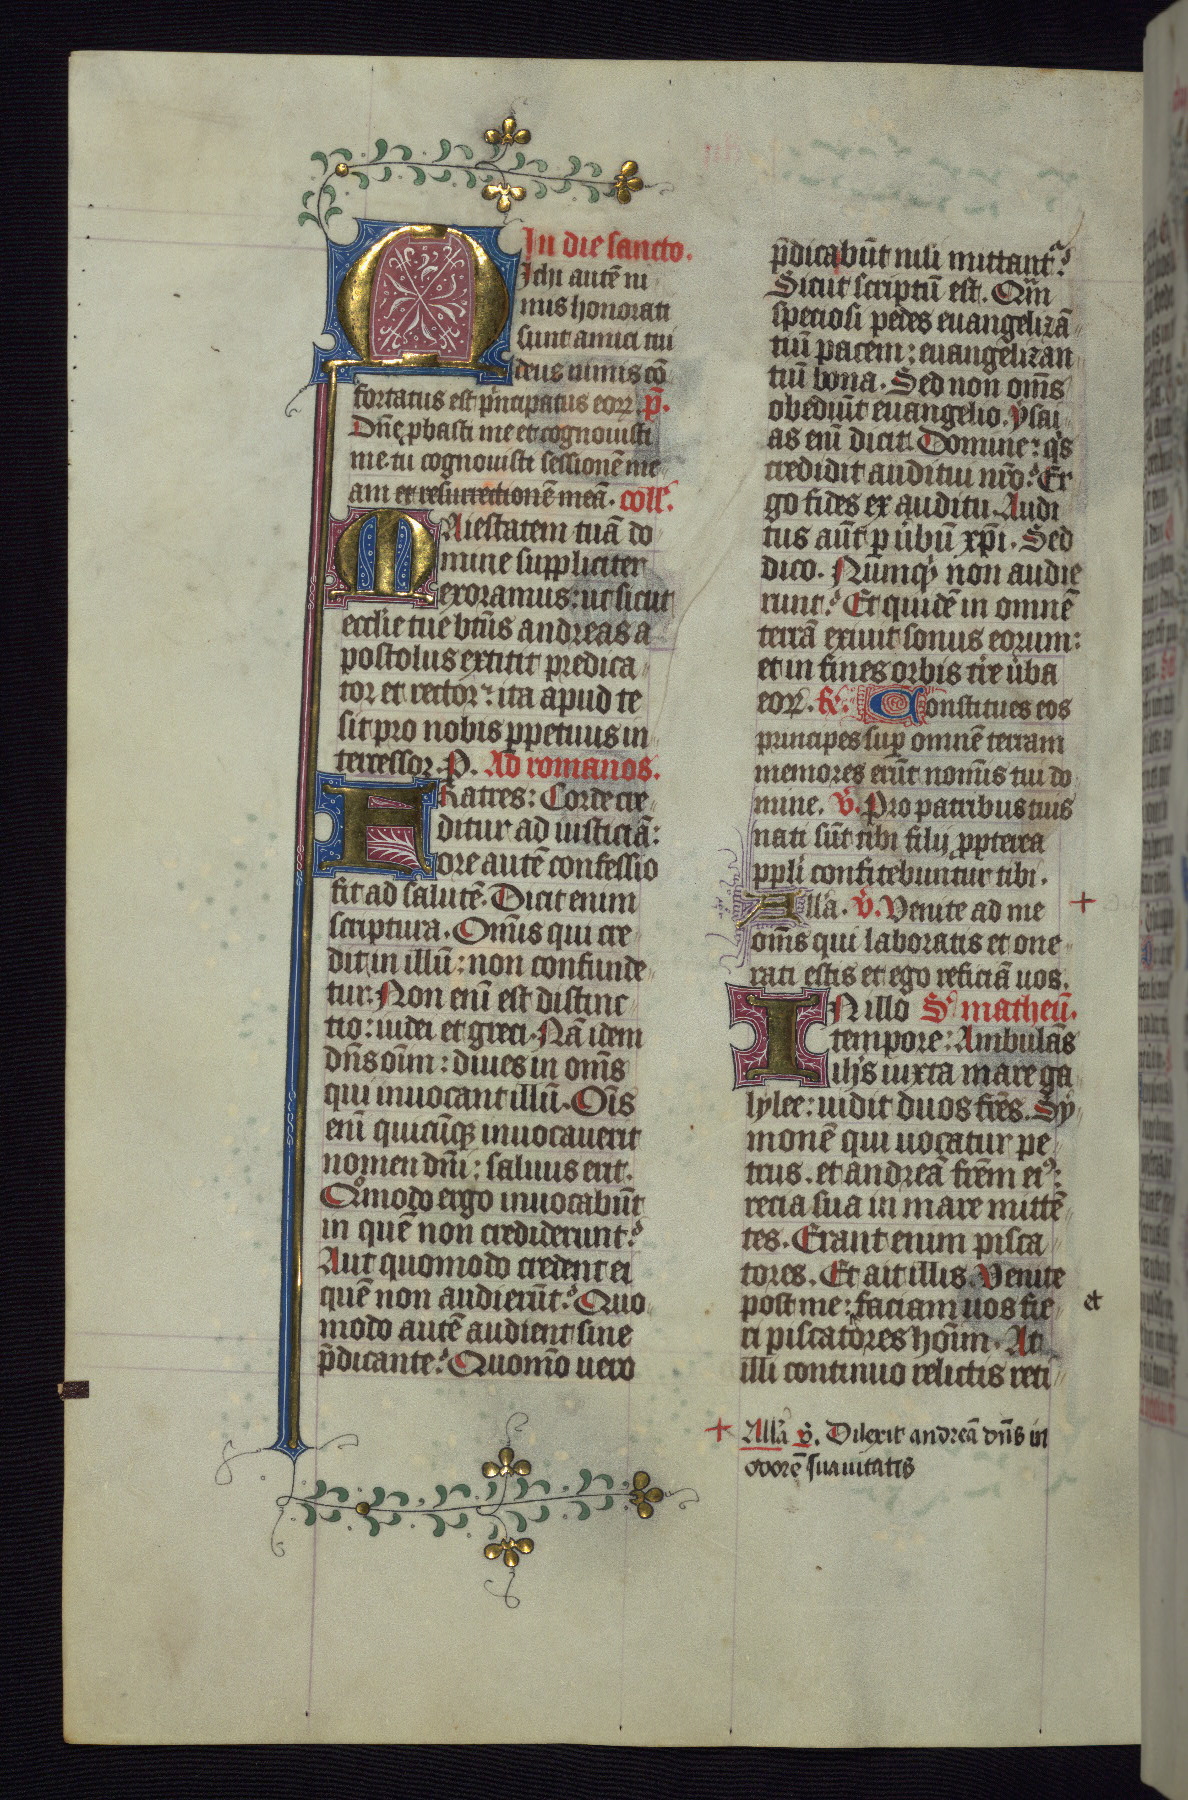 In die sancto.
Michi autē ni
mis honorati
sunt amici tui
deus nimis cō
fortatus est p̄ncipatus eoꝝ. p̄.
Dn̄e ꝓbasti me et cognouisti
me. tu cognouisti sessionē me
am et resurrectionē meā. coll̄.
Maiestatem tuā do
mine suppliciter
exoramus: ut sicut
ecclīe tue btūs andreas a
postolus extitit predica
tor et rector: ita apud te
sit pro nobis ꝑpetuus in
tercessor. P. Ad romanos.
Fratres: Corde cre
ditur ad iusticiā:
ore autē confessio
fit ad salutē. Dicit enim
scriptura. Om̄is qui cre
dit in illū: non confunde
tur. Non enī est distinc
tio: iudei et greci. Nā idem
dn̄s oīm: diues in om̄s
qui inuocant illū. Oīs
enī quicūqꝫ inuocauerit
nomen dn̄i: saluus erit.
Qūomodo ergo inuocabūt
in quē non crediderunt?
Aut quomodo credent ei
quē non audierūt? Quo
modo autē audient sine
p̄dicante? Quomō uero
p̄dicabūt nisi mittantᷣ?
Sicut scriptū est. Qm̄
speciosi pedes euangelizā
tiū pacem: euangelizan
tiū bona. Sed non om̄s
obediūt euangelio. ysai
as enī dicit. Domine: qͥs
credidit auditui nr̄o? Er
go fides ex auditu. Audi
tus aūt ꝑ ūbū xp̄i. Sed
dico. Nūmqͥd non audie
runt? Et quidē in omnē
terrā exiuit sonus eorum:
et in fines orbis tr̄e ūba
eoꝝ. R̄. Constitues eos
principes suꝑ omnē terram
memores erūt nomīs tui do
mine. v̄. Pro patribus tuis
nati sūt tibi filij ꝓpterea
ppl̄i confitebuntur tibi.
All̄a. v̄. Venite ad me +
om̄s qui laboratis et one
rati estis et ego reficiā uos.
IN illo S matheū.
tempore: Ambulās
ihs̄ iuxta mare ga
lylee: uidit duos fr̄es. Sy
monē qui uocatur pe
trus. et andreā fr̄em eiꝰ:
recia sua in mare mittē
tes. Erant enim pisca
tores. Et ait illis. Venite
post me: faciam uos fie et
ri piscatores hoīm. At
illi continuo relictis reti
+ All̄a v̄. Dilexit andreā dn̄s in
odorē suauitatis